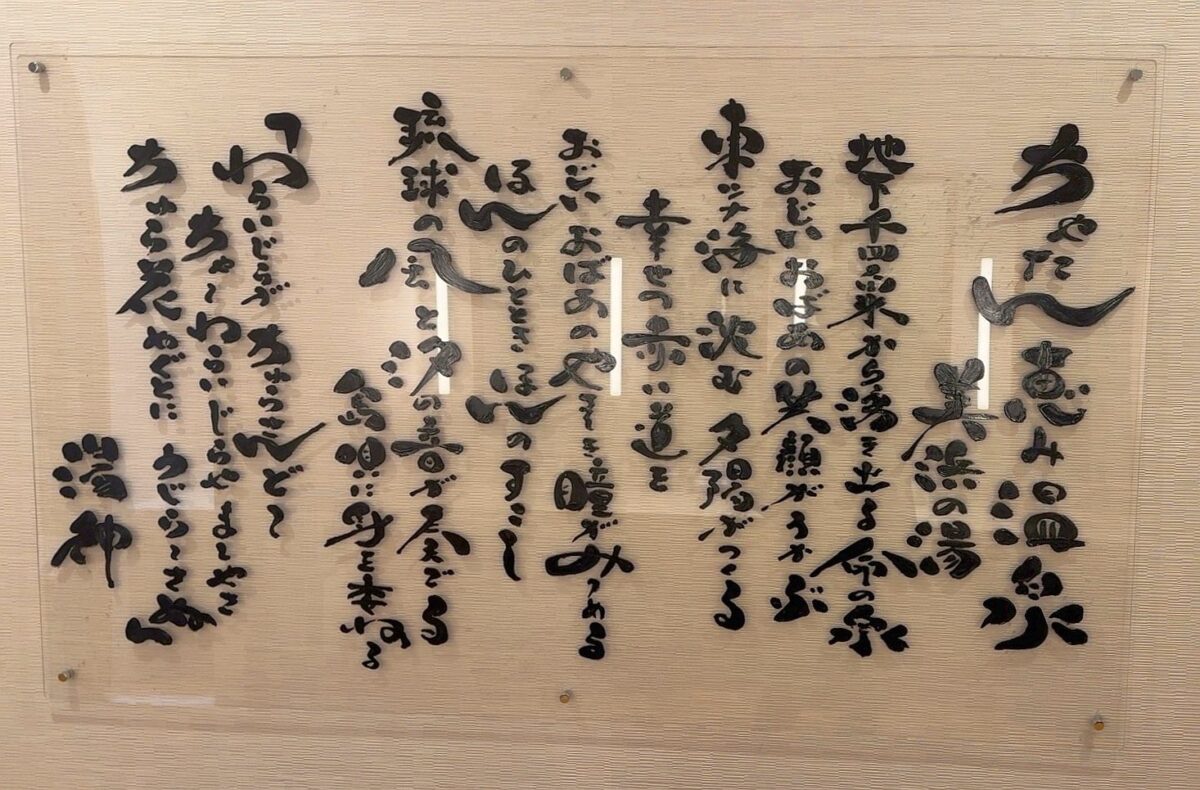 ちゃたん恵み温泉
美浜の湯
地下千四米から湧き出る命の泉
おじいおばあの笑顔がうかぶ
東シナ海に沈む夕陽がつくる
幸せの赤い道を
おじいおばあのやさしき瞳がみつめる
ほんのひとときほんのすこし
琉球の風と夕の音が奏でる
島唄に身を委ねる
「わらいじらが ちゅらさんどー
ちゃーわらいじらや まーやさ
ちゅら花 やぐとに うじらーさぬ